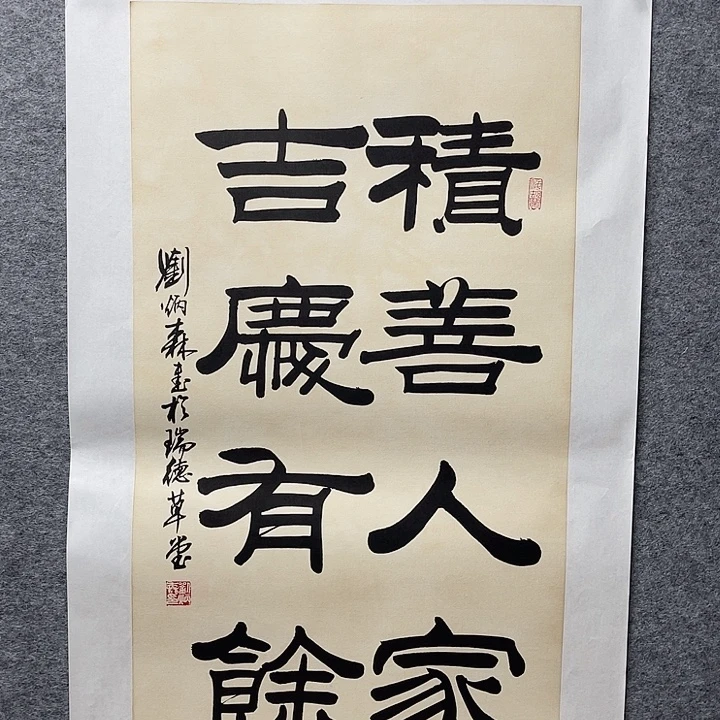 積善人家
吉慶有餘
劉炳森書於瑞德草堂